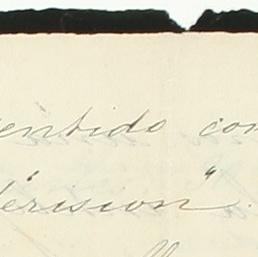 entido con
érision".